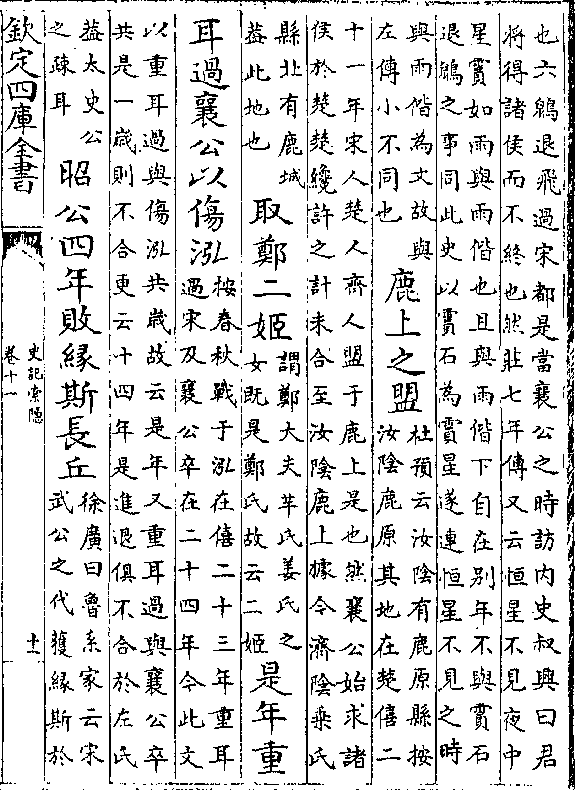 也六鶂退飛過宋都是當襄公之時訪内史叔興曰君
將得諸侯而不終也然莊七年傳又云恒星不見夜中
星霣如雨與雨偕也且與雨偕下自在别年不與霣石
退鶂之事同此史以霣石為霣星遂連恒星不見之時
與雨偕為文故與
左傳小不同也
鹿上之盟
杜預云汝陰有鹿原縣按
汝陰鹿原其地在楚僖二
十一年宋人楚人齊人盟于鹿上是也然襄公始求諸
侯於楚楚纔許之計未合至汝陰鹿上據今濟陰乗氏
縣北有鹿城
葢此地也
取鄭二姬
謂鄭大夫羋氏姜氏之
女既是鄭氏故云二姬
是年重
耳過襄公以傷泓
按春秋戰于泓在僖二十三年重耳
過宋及襄公卒在二十四年今此文
以重耳過與傷泓共歲故云是年又重耳過與襄公卒
共是一歲則不合更云十四年是進退俱不合於左氏
葢太史公
之疎耳
昭公四年敗緣斯長丘
徐廣曰魯系家云宋
武公之代獲緣斯於
欽定四庫全書
史記索隱
卷十一
十一